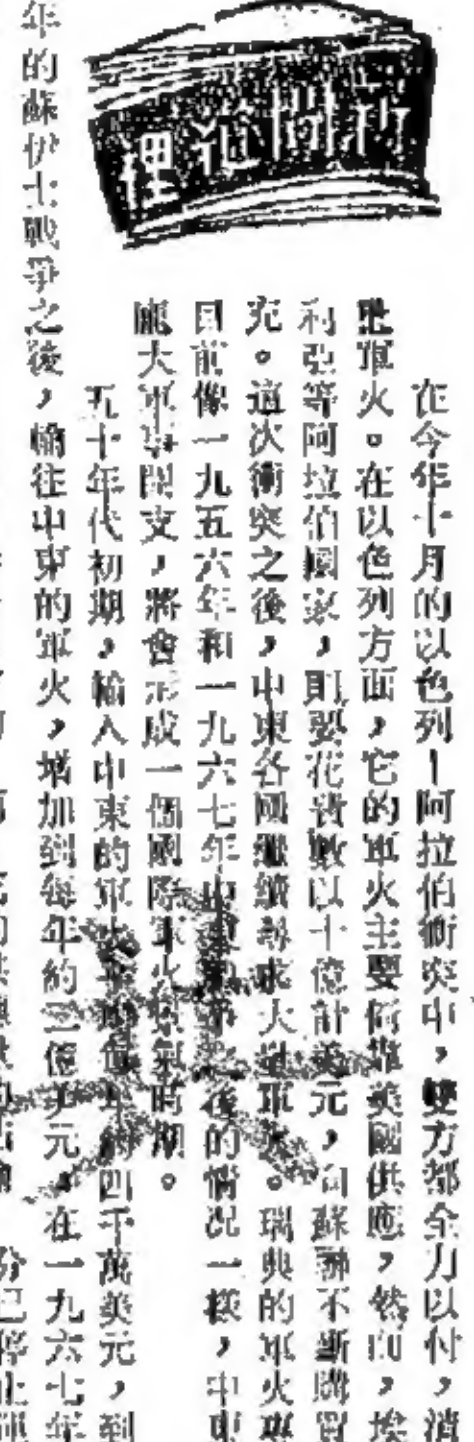 新聞裡
在今年十月的以色列－阿拉伯衝突中，雙方都全力以付，消
軍火。在以色列方面，它的軍火主要倚靠美國供應，然而，埃
利亞等阿拉伯國家，則要花費數以十億計美元，向蘇聯不斷購買
充。這次衝突之後，中東各國繼續尋求大量軍火。瑞典的軍火專
目前像一九五六年和一九六七年中東戰爭之後的情況一樣，中東
龐大軍事開支，將會形成一個國際軍火景氣時期。
五十年代初期，輸入中東的軍火每年約四千萬美元，到
年的蘇伊士戰爭之後，輸往中東的軍火，增加到每年約億美元，在一九六七年